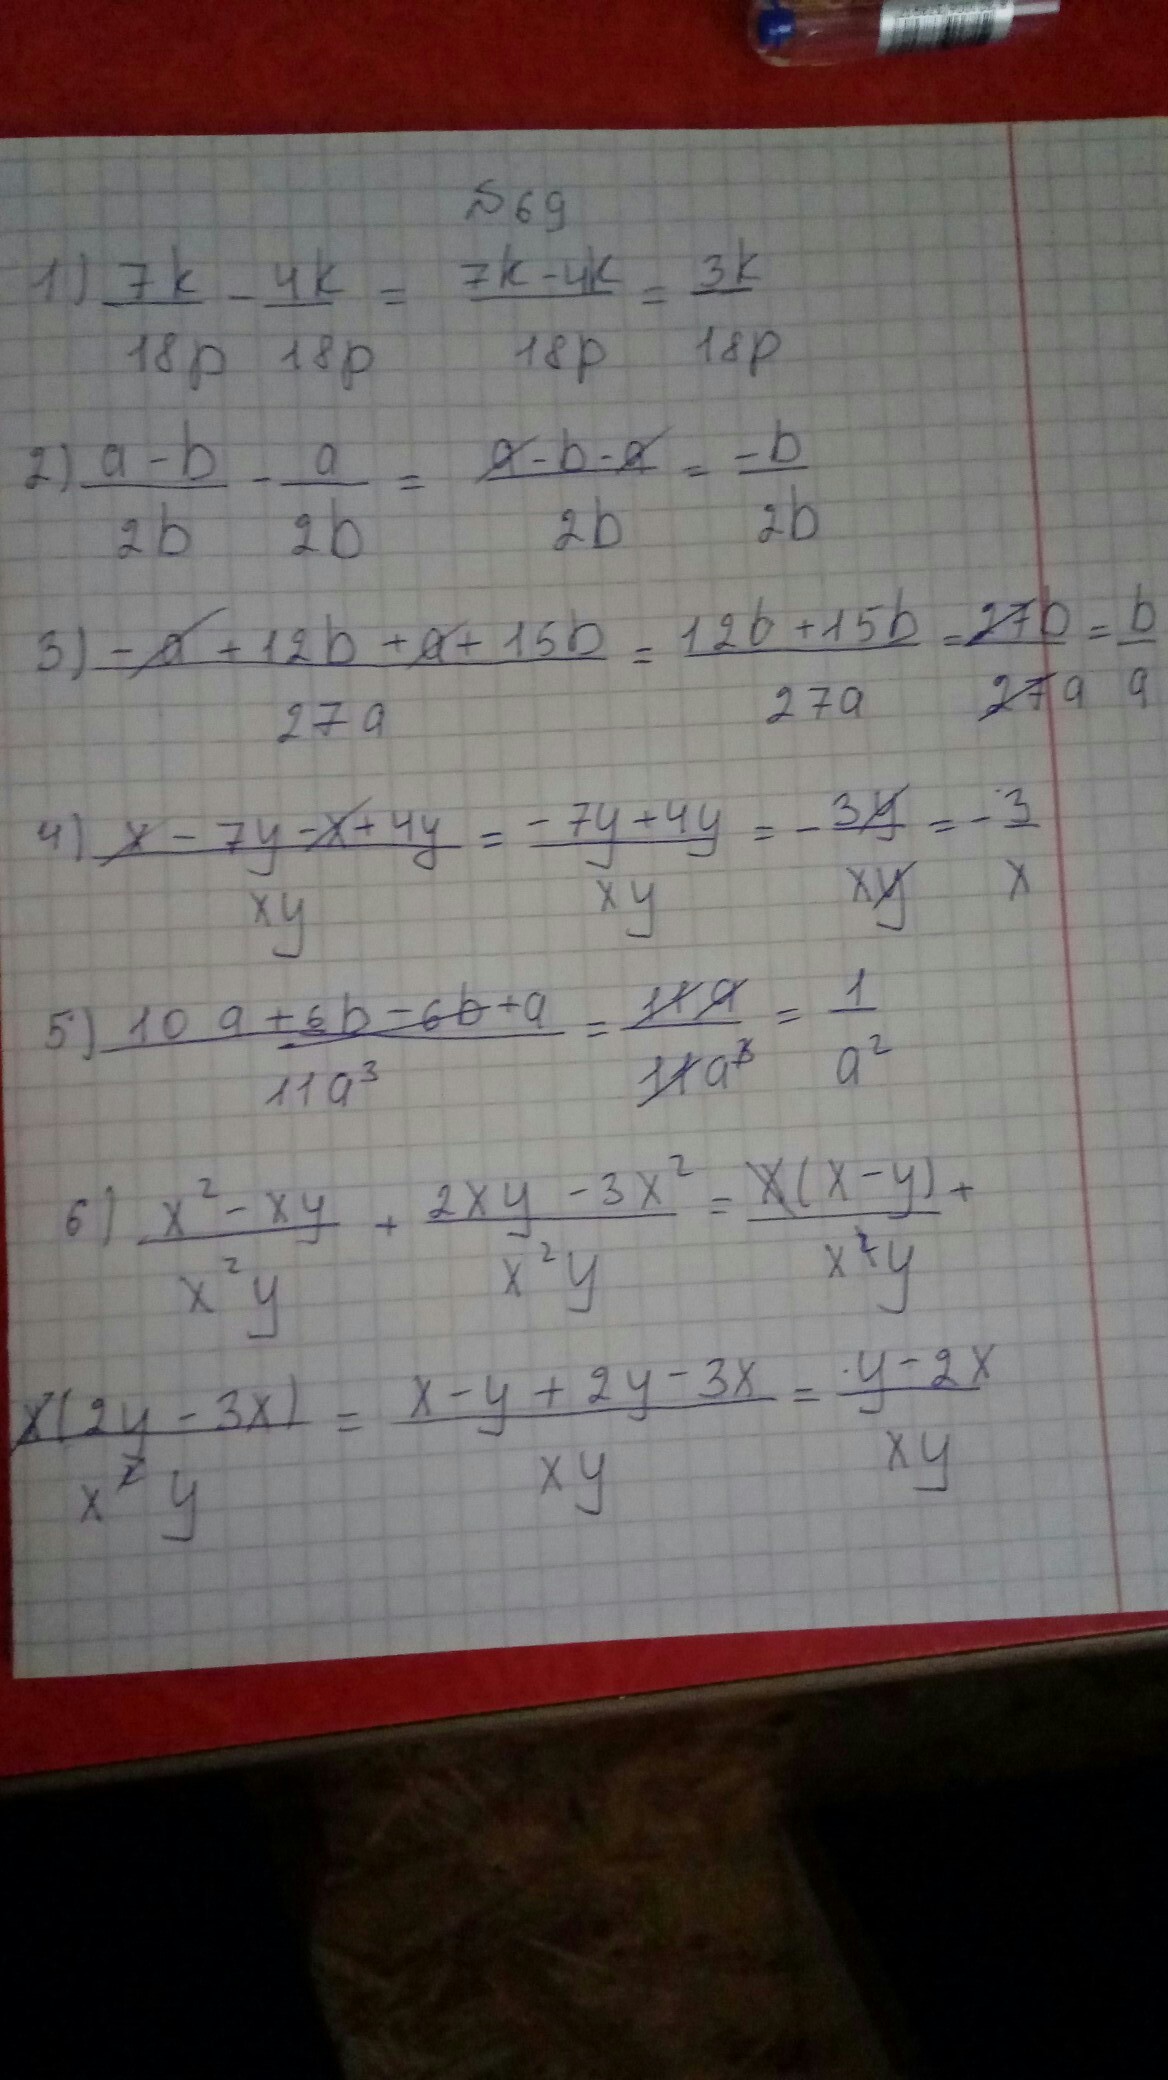 №69
1) 7k/18p - 4k/18p = (7k-4k)/18p = 3k/18p
2) (a-b)/2b - a/2b = (a-b-a)/2b = -b/2b
3) (-a+12b+a+15b)/27a = (12b+15b)/27a = 27b/27a = b/a
4) (x-7y-x+4y)/xy = (-7y+4y)/xy = -3y/xy = -3/x
5) (10a+6b-6b+a)/11a³ = 11a/11a³ = 1/a²
6) (x²-xy)/x²y + (2xy-3x²)/x²y = x(x-y)/x²y +
x(2y-3x)/x²y = (x-y+2y-3x)/xy = (y-2x)/xy